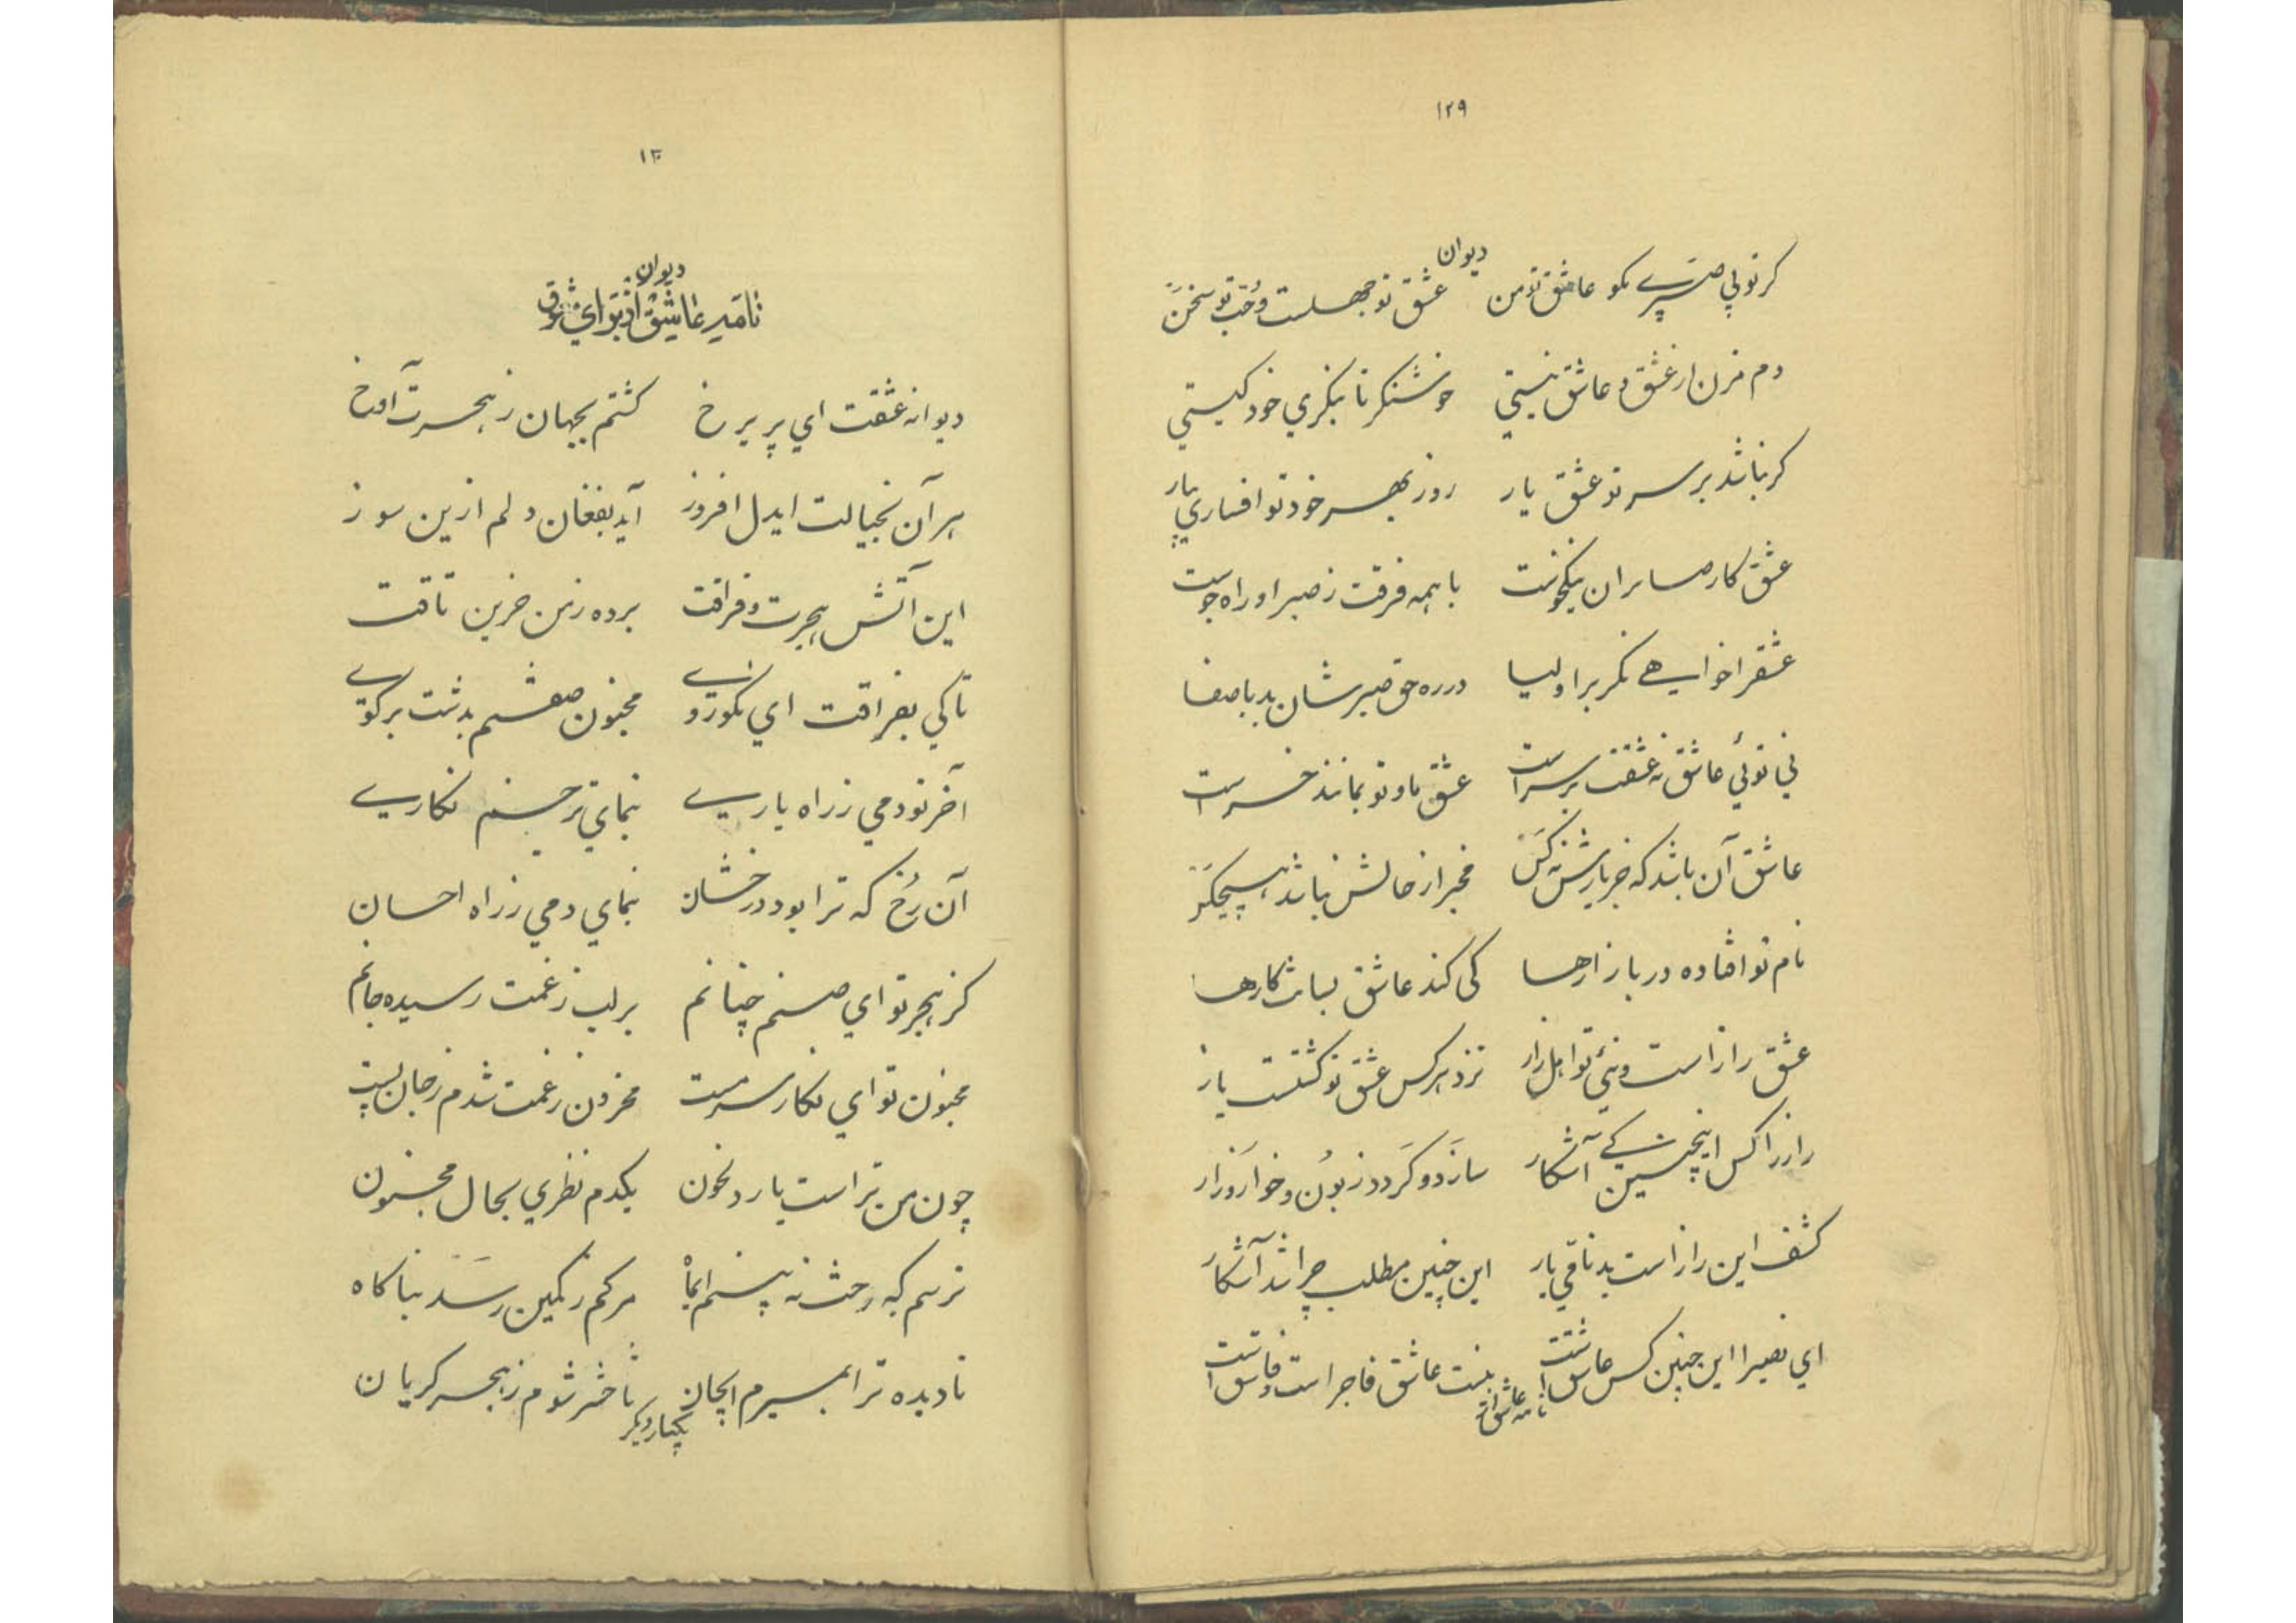 ۱۲۹
دیوان
کر تو بی صبری مکو عاشق تؤ من عشق تو جهلست و حُب تو سخن
دم مزن از عشق و عاشق نیستی خوشنکر تا بنکری خود کیستی
کر نباشد بر سر تو عشق یار روز بهر خود تو افساری بیار
عشق کار صابران نیکخوست با همه فرقت ز صبر او راه جوست
عشقرا خواهی نکر بر اولیا در ره حق صبرشان بد با صفا
نی توئی عاشق نه عشقت بر سر است عشق ما و تو بمانند خر است
عاشق آن باشد که جز یارش نه کس مخبر از حالش نباشد هیچکس
نام تو افتاده در بازارها کی کند عاشق بسانت کارها
عشق راز است و نئی تو اهل راز نزد هر کس عشق تو کشتست باز
راز را کس اینچنین کی آشکار سازد و کردد زبون و خوار و زار
کشف این راز است بدنامی یار این چنین مطلب چرا شد آشکار
ای نصیرا این چنین کس عاشقست نیست عاشق فاجر است و فاسق است
نامه عاشق از
۱۳۰
دیوان
نامه عاشق از تواي شوق
دیوانه عشقت ای پریرخ کشتم بجهان ز هجرت آوخ
هر آن بخیالت ایدل افروز آید بفغان دلم ازین سوز
این آتش هجرت و فراقت برده ز من حزین تاقت
تا کی بفراقت ای نکوروی مجنون صفتم بدشت بر کوی
آخر تو دمی ز راه یاری بنمای ترحم نکاری
آن رُخ که ترا بود درخشان بنمای دمی ز راه احسان
کز هجر تو ای صنم چنانم بر لب ز غمت رسیده جانم
مجنون تو ای نکار سرمست محزون ز غمت شدم ز جان پست
چون من تراست یار دلخون یکدم نظری بحال مجنون
ترسم که رخت نه بینم ایماه مرکم ز کمین رسد بناکاه
نادیده ترا بمیرم ایجان تا حشر شوم ز هجر کریان
یکبار دیکر